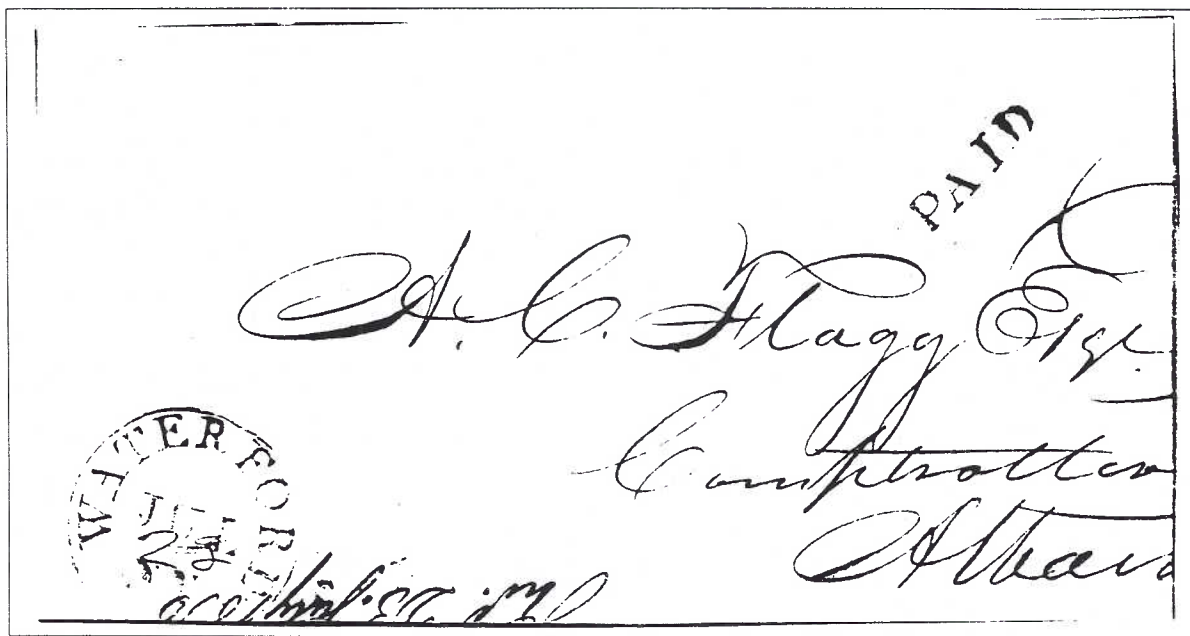 PAID
A. C. Flagg Esqr.
Comptroller
Alban
WATERFORD